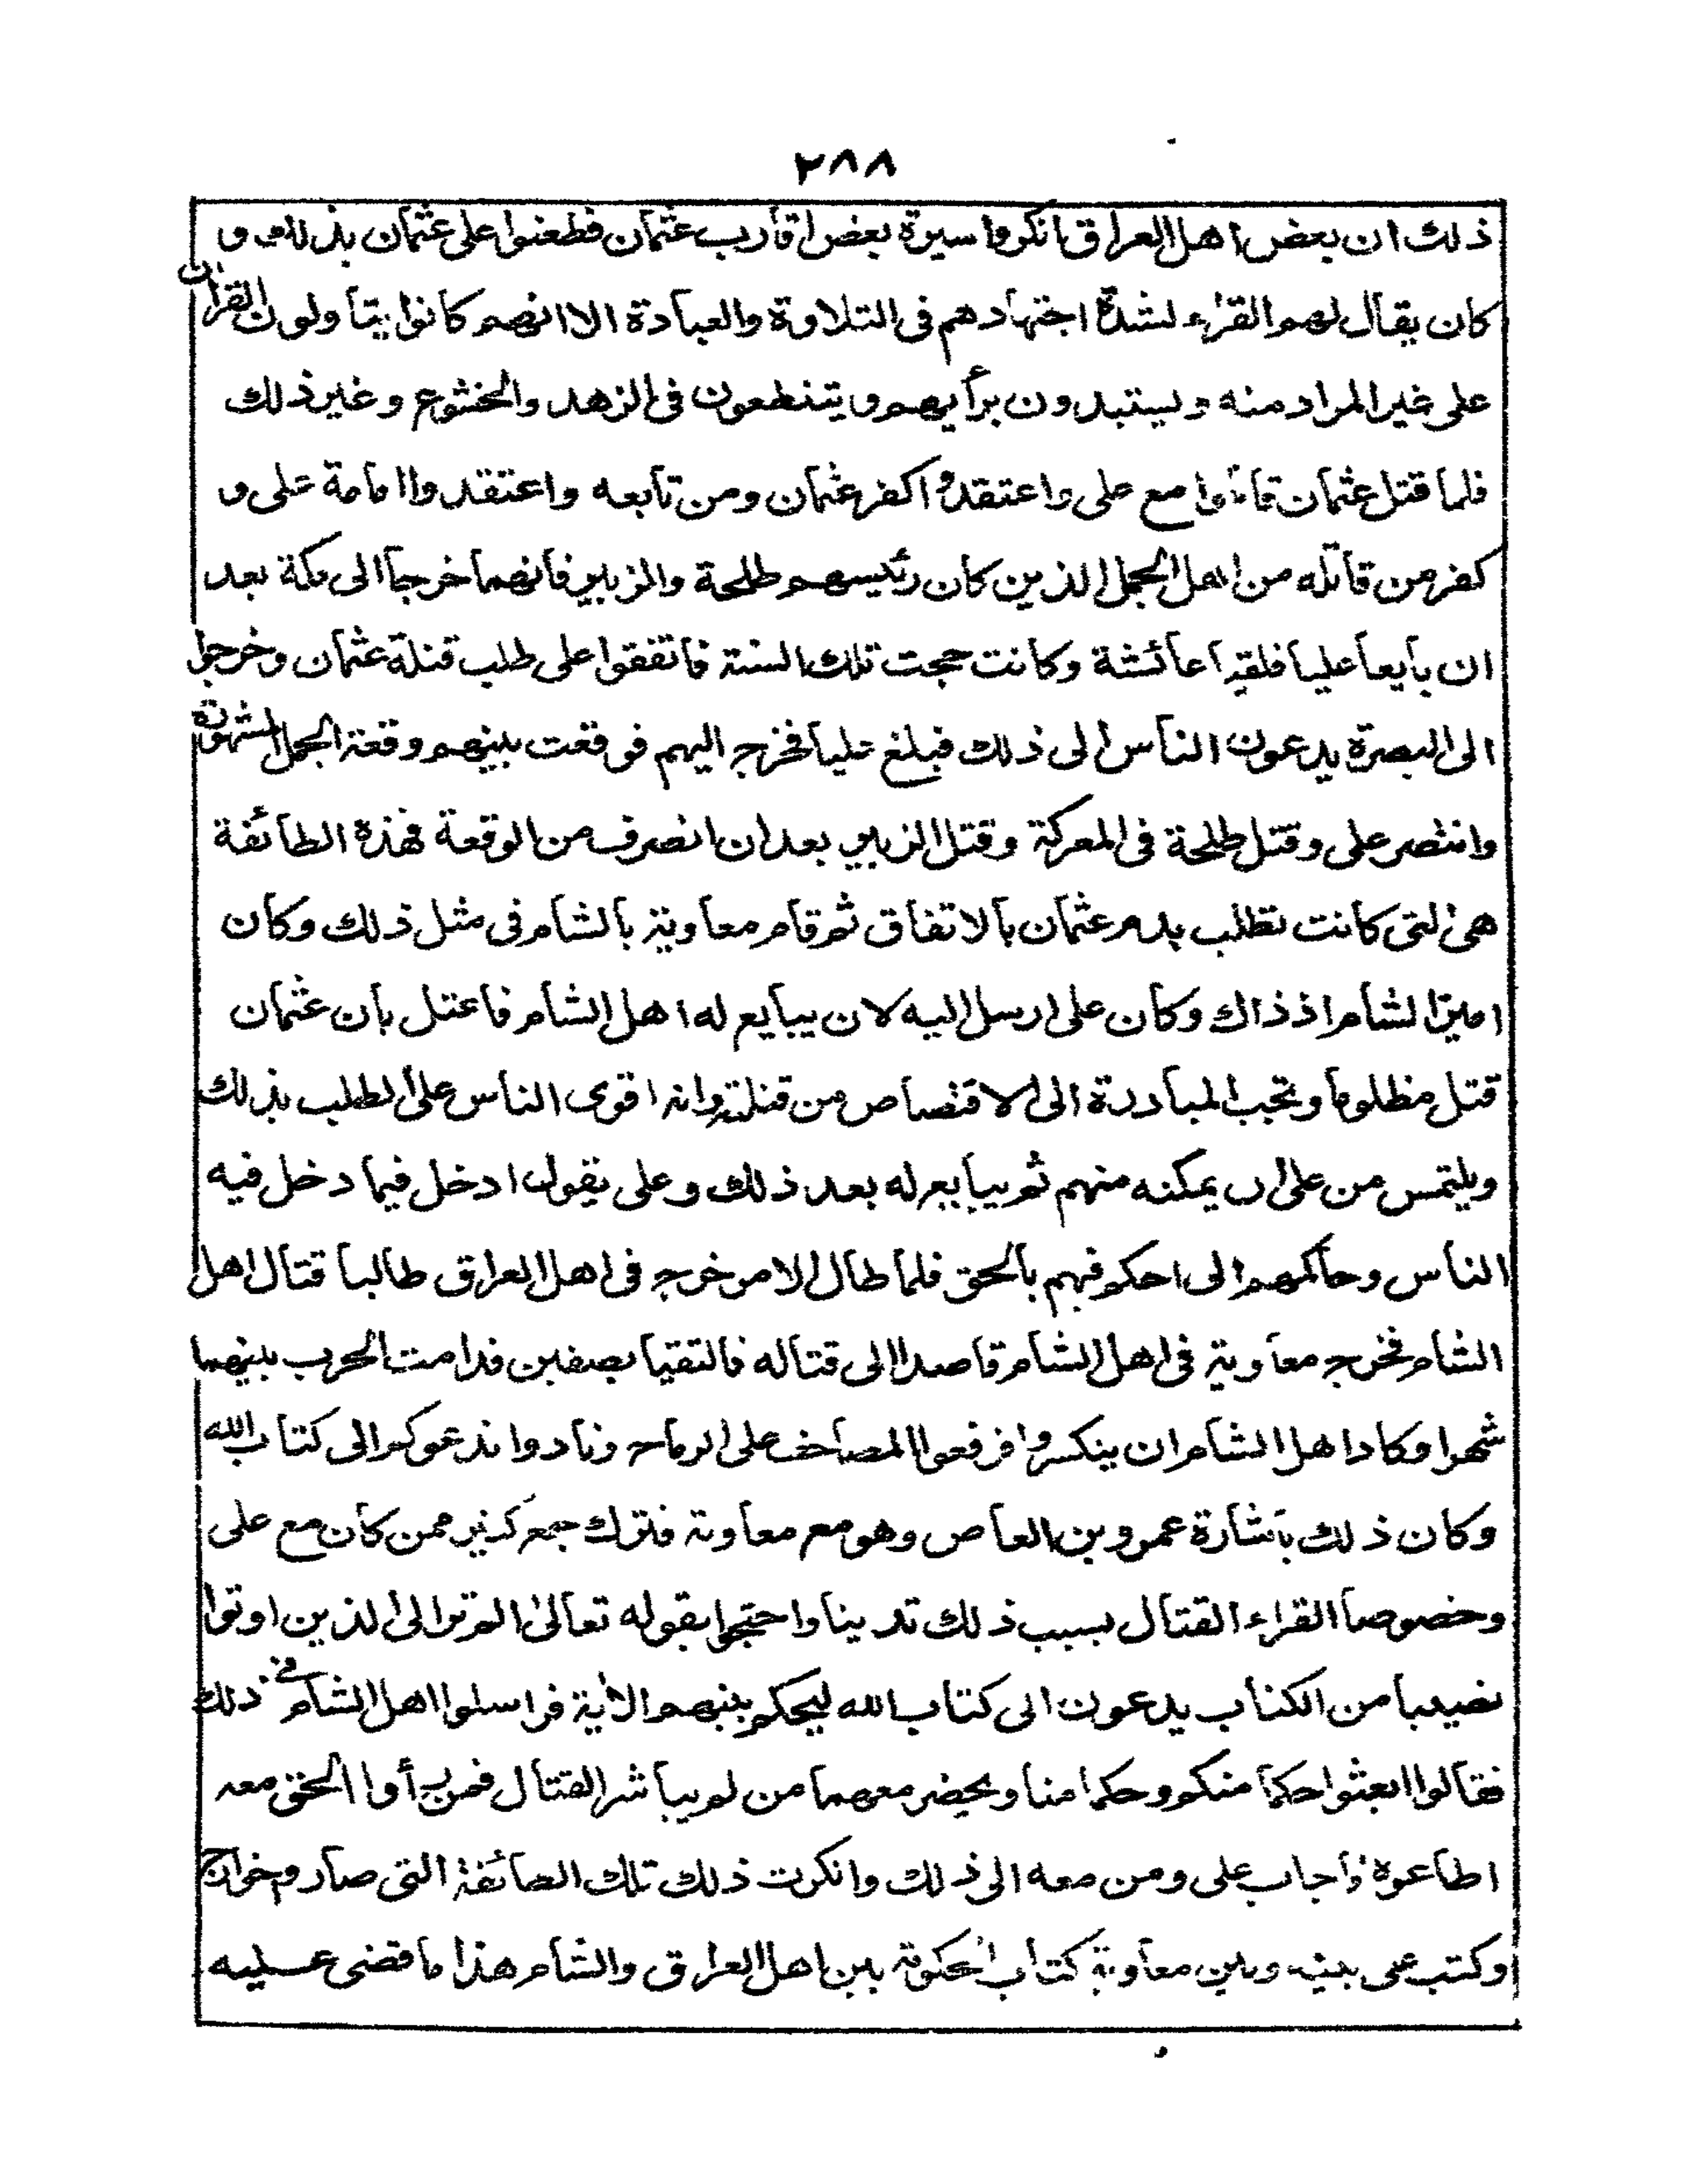 ٢٨٨
ذلك ان بعض اهل العراق انكروا سيرة بعض اقارب عثمان فطعنوا على عثمان بذلك و
كان يقال لهم القراء لشدة اجتهادهم فى التلاوة والعبادة الا انهم كانوا يتأولون القران
على غير المراد منه ويستبدون برأيهم و يتنطعون فى الزهد والخشوع وغير ذلك
فلما قتل عثمان قاتلوا مع على واعتقدوا كفر عثمان ومن تابعه واعتقدوا امامة على و
كفر من قاتله من اهل الجمل الذين كان رئيسهم طلحة والزبير فانهما خرجا الى مكة بعد
ان بايعا عليا فلقيا عائشة وكانت حجت تلك السنة فاتفقوا على طلب قتلة عثمان وخرجوا
الى البصرة يدعون الناس الى ذلك فبلغ عليا فخرج اليهم فوقعت بينهم وقعة الجمل المشهورة
وانتصر على وقتل طلحة فى المعركة وقتل الزبير بعد ان انصرف من الوقعة فهذه الطائفة
هى التى كانت تطلب بدم عثمان بالاتفاق ثم قام معاوية بالشام فى مثل ذلك وكان
امير الشام اذ ذاك وكان على ارسل اليه لان يبايع له اهل الشام فاعتل بان عثمان
قتل مظلوما وتجب المبادرة الى الاقتصاص من قتلته وانه اقوى الناس على الطلب بذلك
ويلتمس من على ان يمكنه منهم ثم يبايع له بعد ذلك وعلى يقول ادخل فيما دخل فيه
الناس وحاكمهم الى احكم فيهم بالحق فلما طال الامر خرج فى اهل العراق طالبا قتال اهل
الشام فخرج معاوية فى اهل الشام قاصدا الى قتاله فالتقيا بصفين فدامت الحرب بينهما
شهرا وكاد اهل الشام ان ينكسروا فرفعوا المصاحف على الرماح ونادوا ندعوكم الى كتاب الله
وكان ذلك باشارة عمرو بن العاص وهو مع معاوية فترك جمع كثير ممن كان مع على
وخصوصا القراء القتال بسبب ذلك تدينا واحتجوا بقوله تعالى الم تر الى الذين اوتوا
نصيبا من الكتاب يدعون الى كتاب الله ليحكم بينهم الاية فراسلوا اهل الشام فى ذلك
فقالوا ابعثوا حكما منكم وحكما منا ويحضر معهما من لم يباشر القتال فمن رأوا الحق معه
اطاعوه فاجاب على ومن معه الى ذلك وانكرت ذلك تلك الطائفة التى صاروا خوارج
وكتب على بينه وبين معاوية كتاب الحكومة بين اهل العراق والشام هذا ما قضى عليه